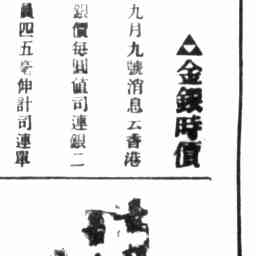 ▲金銀時價
九月九號消息云香港
銀價每圓値司連銀二
員四五毫伸計司連單